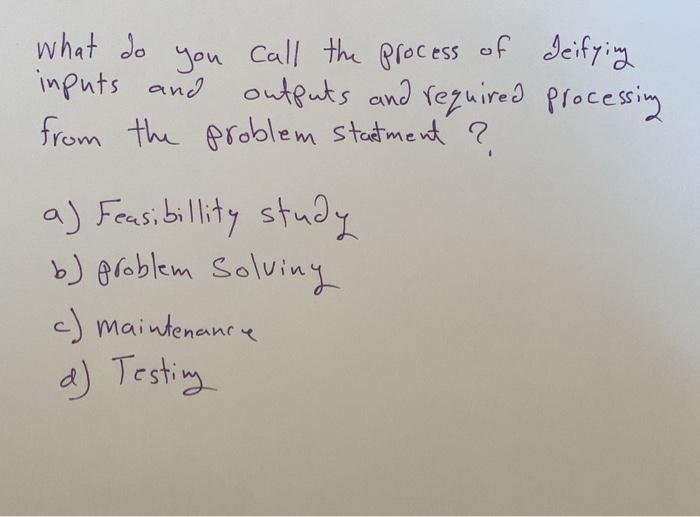 What do you call the process of deifying
inputs and outputs and required processing
from the problem statment ?
a) Feasibillity study
b) problem solving
c) maintenance
d) Testing